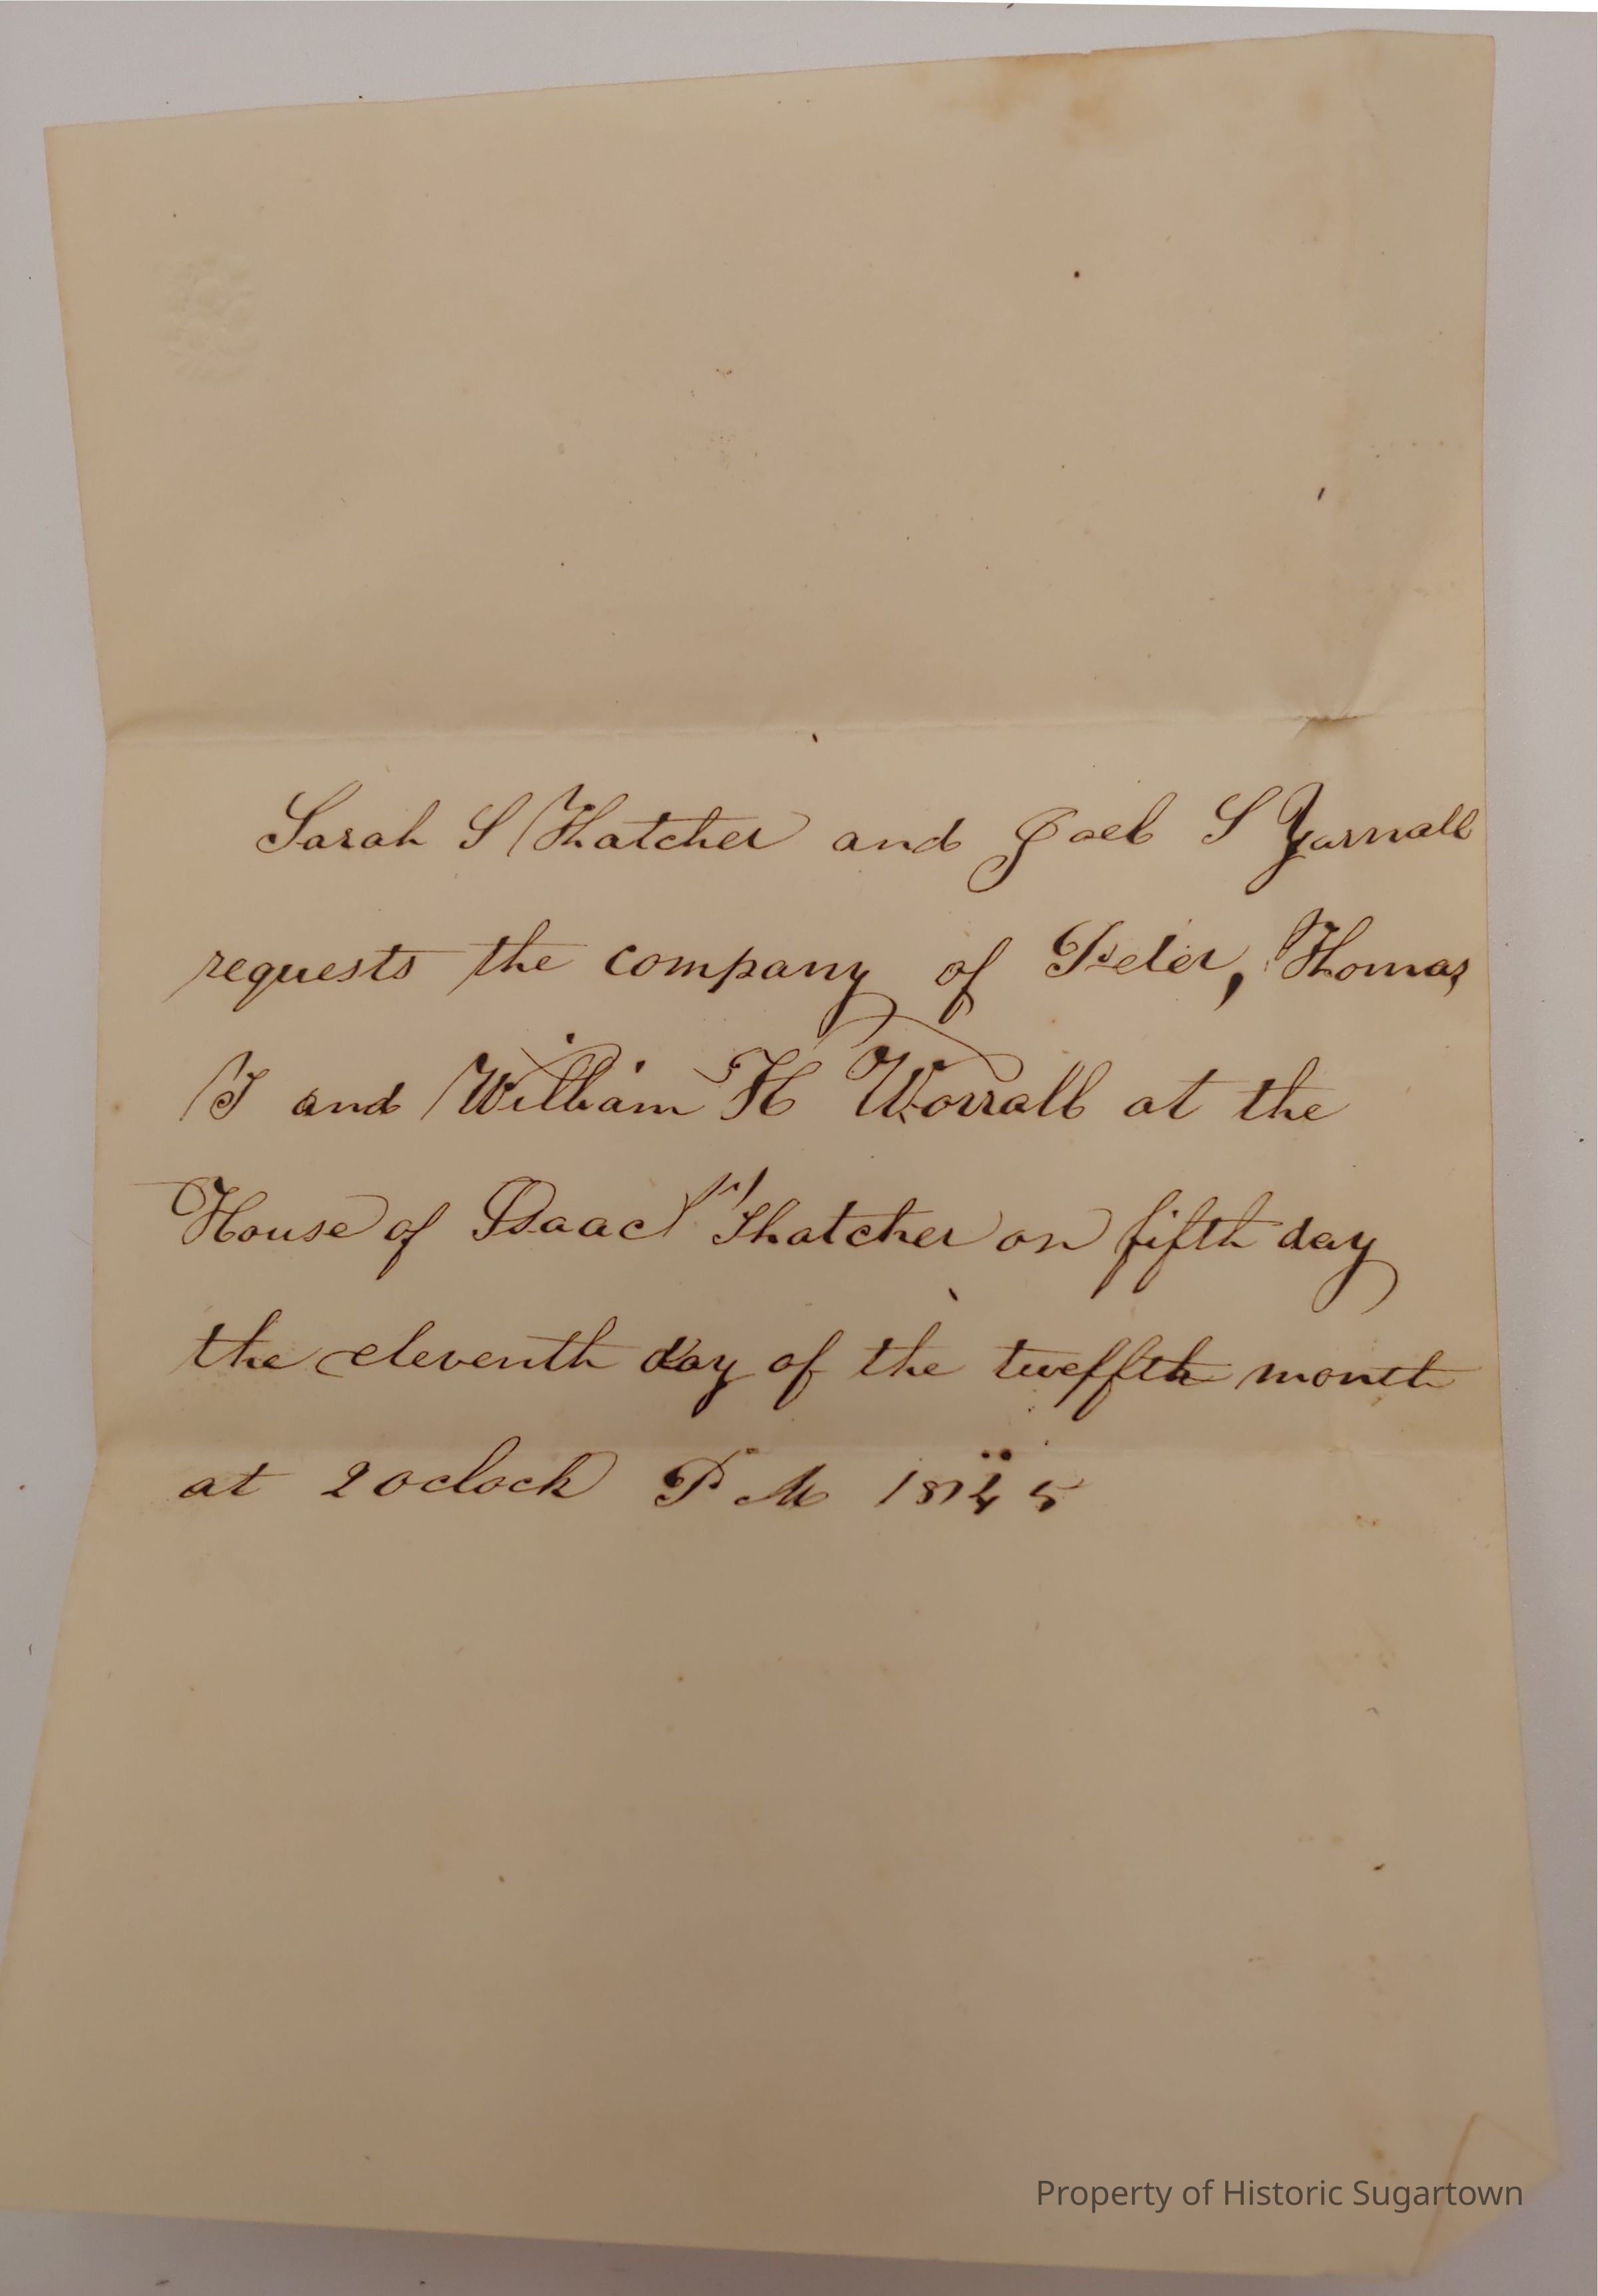 Sarah S Thatcher and Joel S Yarnall
requests the company of Peter, Thomas
T and William H Worrall at the
House of Isaac Thatcher on fifth day
the eleventh day of the twelfth month
at 2 oclock P M 1845
Property of Historic Sugartown